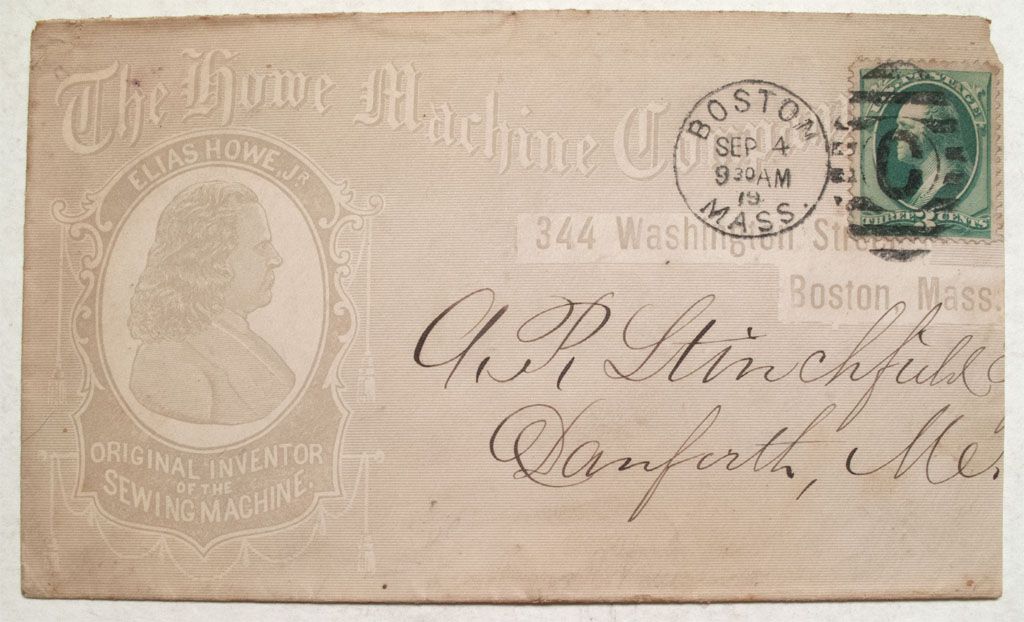 The Howe Machine Company
ELIAS HOWE, JR
ORIGINAL INVENTOR
OF THE
SEWING MACHINE.
BOSTON
SEP 4
9 30 AM
19
MASS.
POSTAGE
C
THREE 3 CENTS
344 Washington Street
Boston Mass.
A. P. Stinchfield
Danforth, Me.